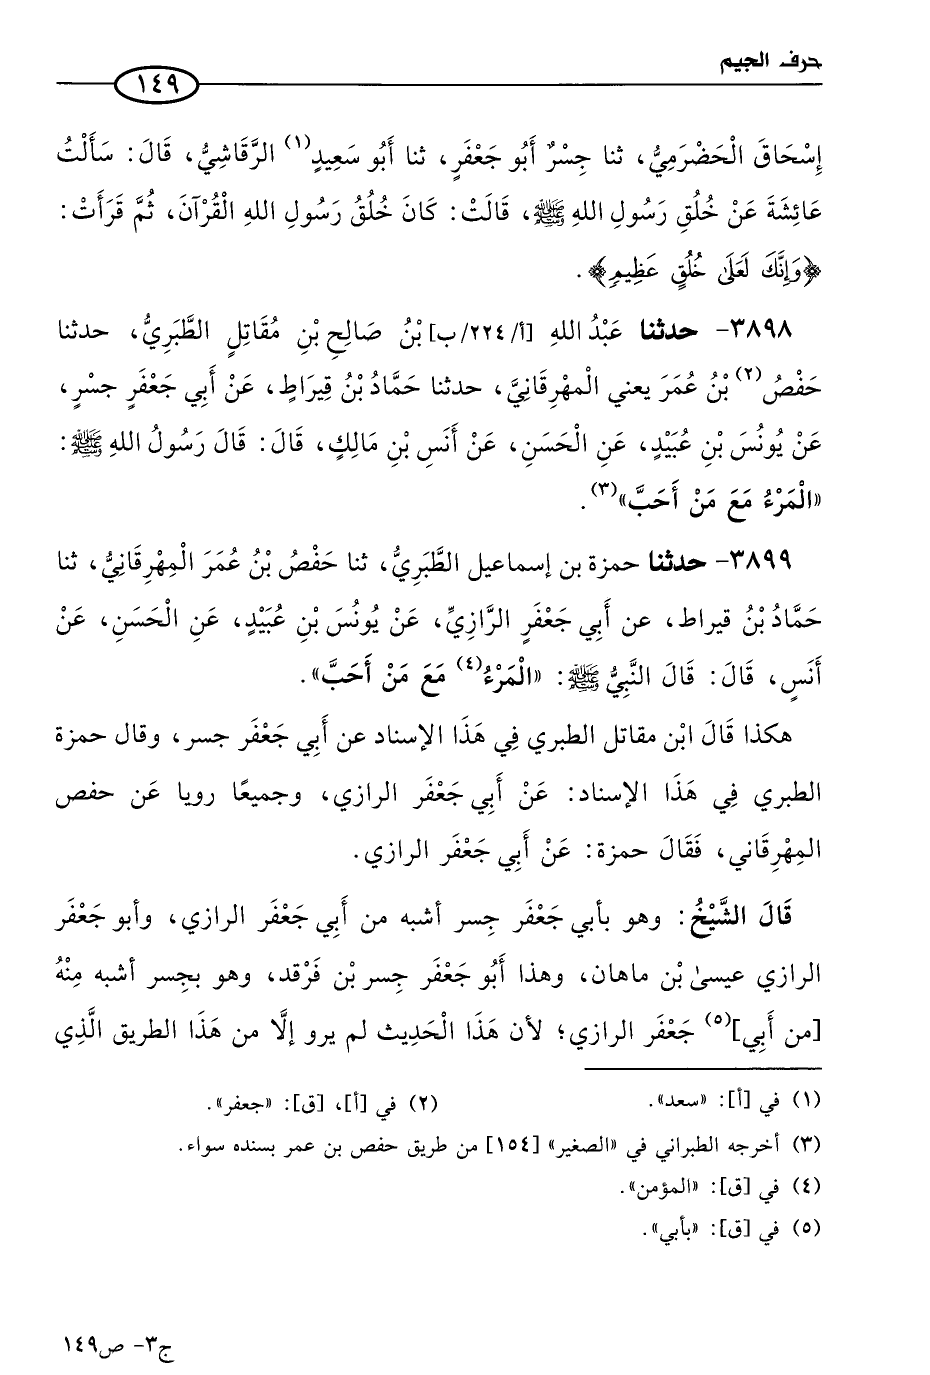 حرف الجيم
١٤٩
إِسْحَاقَ الْحَضْرَمِيُّ، ثنا جِسْرٌ أَبُو جَعْفَرٍ، ثنا أَبُو سَعِيدٍ(١) الرَّقَاشِيُّ، قَالَ: سَأَلْتُ
عَائِشَةَ عَنْ خُلُقِ رَسُولِ اللهِ ﷺ، قَالَتْ: كَانَ خُلُقُ رَسُولِ اللهِ الْقُرْآنَ، ثُمَّ قَرَأَتْ:
﴿وَإِنَّكَ لَعَلَىٰ خُلُقٍ عَظِيمٍ﴾.
٣٨٩٨- حدثنا عَبْدُ اللهِ [أ/٢٢٤/ب] بْنُ صَالِحِ بْنِ مُقَاتِلٍ الطَّبَرِيُّ، حدثنا
حَفْصُ(٢) بْنُ عُمَرَ يعني الْمهْرِقَانِيَّ، حدثنا حَمَّادُ بْنُ قِيرَاطٍ، عَنْ أَبِي جَعْفَرٍ جسْرٍ،
عَنْ يُونُسَ بْنِ عُبَيْدٍ، عَنِ الْحَسَنِ، عَنْ أَنَسِ بْنِ مَالِكٍ، قَالَ: قَالَ رَسُولُ اللهِ ﷺ:
«الْمَرْءُ مَعَ مَنْ أَحَبَّ»(٣).
٣٨٩٩- حدثنا حمزة بن إسماعيل الطَّبَرِيُّ، ثنا حَفْصُ بْنُ عُمَرَ الْمِهْرِقَانِيُّ، ثنا
حَمَّادُ بْنُ قيراط، عن أَبِي جَعْفَرٍ الرَّازِيِّ، عَنْ يُونُسَ بْنِ عُبَيْدٍ، عَنِ الْحَسَنِ، عَنْ
أَنَسٍ، قَالَ: قَالَ النَّبِيُّ ﷺ: «الْمَرْءُ(٤) مَعَ مَنْ أَحَبَّ».
هكذا قَالَ ابْن مقاتل الطبري فِي هَذَا الإسناد عن أَبِي جَعْفَر جسر، وقال حمزة
الطبري فِي هَذَا الإسناد: عَنْ أَبِي جَعْفَر الرازي، وجميعًا رويا عَن حفص
المِهْرِقَاني، فَقَالَ حمزة: عَنْ أَبِي جَعْفَر الرازي.
قَالَ الشَّيْخُ: وهو بأبي جَعْفَر جِسر أشبه من أَبِي جَعْفَر الرازي، وأبو جَعْفَر
الرازي عيسىٰ بْن ماهان، وهذا أَبُو جَعْفَر جِسر بْن فَرْقد، وهو بجِسر أشبه مِنْهُ
[من أَبِي](٥) جَعْفَر الرازي؛ لأن هَذَا الْحَدِيث لم يرو إلَّا من هَذَا الطريق الَّذِي
(١) في [أ]: «سعد».
(٢) في [أ]، [ق]: «جعفر».
(٣) أخرجه الطبراني في «الصغير» [١٥٤] من طريق حفص بن عمر بسنده سواء.
(٤) في [ق]: «المؤمن».
(٥) في [ق]: «بأبي».
ج٣- ص١٤٩